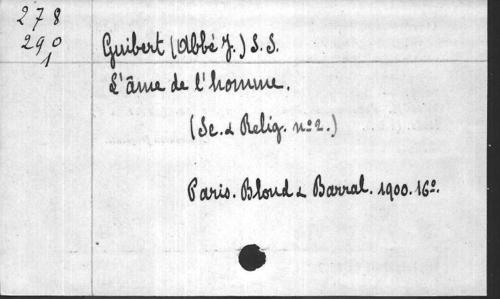 278
290
1
Guibert (Abbé J.) S. S.
L'âme de l'homme.
(Sc. & Relig. nº 2.)
Paris. Bloud & Barral. 1900. 16º.